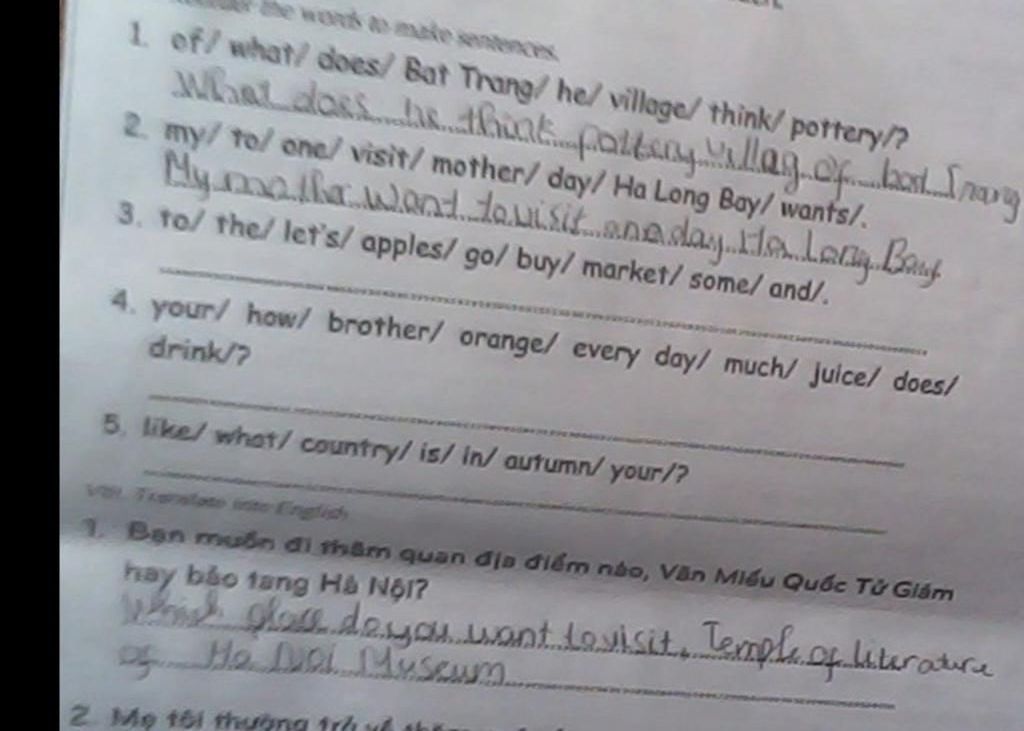 the words to make sentences.
1. of/ what/ does/ Bat Trang/ he/ village/ think/ pottery/?
What does he think pottery villag of bat Trang
2. my/ to/ one/ visit/ mother/ day/ Ha Long Bay/ wants/.
My mother want to visit one day Ha Long Bay
3. to/ the/ let's/ apples/ go/ buy/ market/ some/ and/.
4. your/ how/ brother/ orange/ every day/ much/ juice/ does/
drink/?
5. like/ what/ country/ is/ in/ autumn/ your/?
VIII. Translate into English
1. Bạn muốn đi thăm quan địa điểm nào, Văn Miếu Quốc Tử Giám
hay bảo tàng Hà Nội?
Which do you want to visit, Temple of literature
Ha Noi Museum
2. Mẹ tôi thường trở về